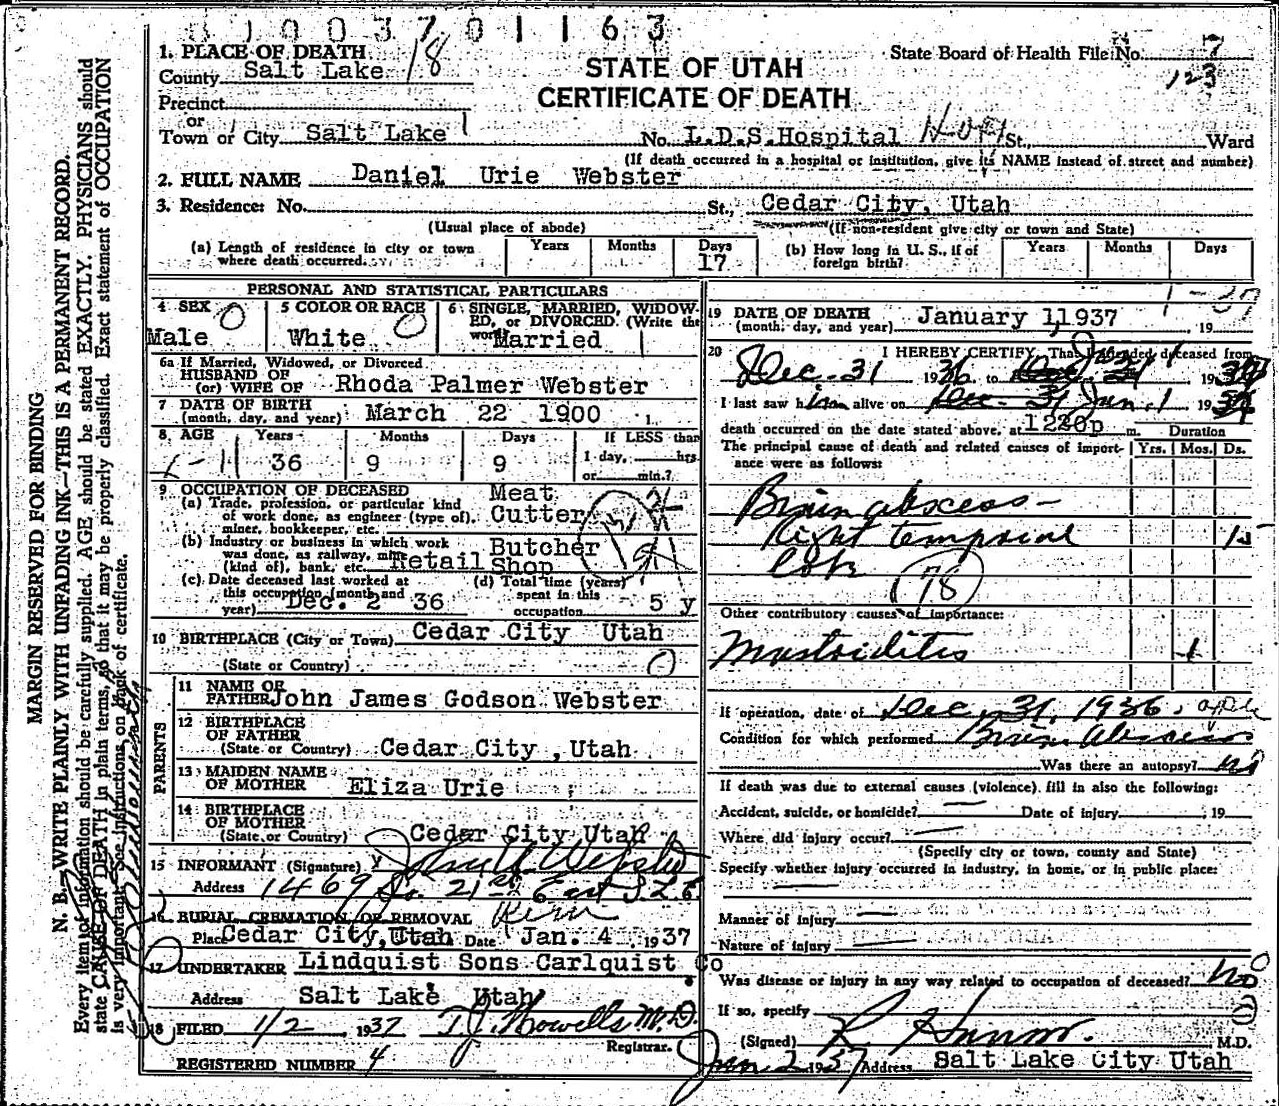 81003701163
1. PLACE OF DEATH
County Salt Lake 18
Precinct
or
Town or City Salt Lake 1
STATE OF UTAH
CERTIFICATE OF DEATH
State Board of Health File No. 7
123
No. L.D.S. Hospital St., Ward
(If death occurred in a hospital or institution, give its NAME instead of street and number)
2. FULL NAME Daniel Urie Webster
3. Residence: No. St., Cedar City, Utah
(Usual place of abode) (If non-resident give city or town and State)
(a) Length of residence in city or town where death occurred. Years Months Days 17
(b) How long in U. S., if of foreign birth? Years Months Days
MARGIN RESERVED FOR BINDING
N. B.—WRITE PLAINLY WITH UNFADING INK—THIS IS A PERMANENT RECORD.
Every item of information should be carefully supplied. AGE should be stated EXACTLY. PHYSICIANS should
state CAUSE OF DEATH in plain terms, so that it may be properly classified. Exact statement of OCCUPATION
is very important. See instructions on back of certificate.
PERSONAL AND STATISTICAL PARTICULARS
4 SEX Male 0
5 COLOR OR RACE White 0
6 SINGLE, MARRIED, WIDOWED, or DIVORCED. (Write the word) Married 1
6a If Married, Widowed, or Divorced
HUSBAND OF
(or) WIFE OF Rhoda Palmer Webster
7 DATE OF BIRTH
(month, day, and year) March 22 1900
8. AGE Years 36 Months 9 Days 9
If LESS than
1 day, hrs.
or min.?
9 OCCUPATION OF DECEASED
(a) Trade, profession, or particular kind
of work done, as engineer (type of),
miner, bookkeeper, etc. Meat Cutter
(b) Industry or business in which work
was done, as railway, mine
(kind of), bank, etc. Retail Butcher Shop
(c) Date deceased last worked at
this occupation (month and
year) Dec. 2 36
(d) Total time (years)
spent in this
occupation 5 y
10 BIRTHPLACE (City or Town) Cedar City Utah
(State or Country) 0
PARENTS
11 NAME OF
FATHER John James Godson Webster
12 BIRTHPLACE
OF FATHER
(State or Country) Cedar City, Utah
13 MAIDEN NAME
OF MOTHER Eliza Urie
14 BIRTHPLACE
OF MOTHER
(State or Country) Cedar City Utah
15 INFORMANT (Signature) John U. Webster
Address 1469 So. 21st East S.L.C.
16 BURIAL, CREMATION, OR REMOVAL Rem
Place Cedar City, Utah Date Jan. 4, 1937
17 UNDERTAKER Lindquist Sons Carlquist Co
Address Salt Lake Utah
18 FILED 1/2 1937 T.J. Howells M.D.
Registrar.
REGISTERED NUMBER 4
1-37
19 DATE OF DEATH
(month, day, and year) January 1, 1937 19
20 I HEREBY CERTIFY, That I attended deceased from
Dec. 31 1936 to Jan 1 1937
I last saw him alive on Jan. 1 1937
death occurred on the date stated above, at 1220p m. Duration
The principal cause of death and related causes of importance were as follows: Yrs. Mos. Ds.
Brain abscess -
Right temporal 15
lobe
78
Other contributory causes of importance:
Mastoiditis 1
If operation, date of Dec. 31, 1936.
Condition for which performed Brain Abscess
Was there an autopsy? No
If death was due to external causes (violence), fill in also the following:
Accident, suicide, or homicide? — Date of injury 19
Where did injury occur? —
(Specify city or town, county and State)
Specify whether injury occurred in industry, in home, or in public place:
Manner of injury —
Nature of injury —
Was disease or injury in any way related to occupation of deceased? No
If so, specify
(Signed) M.D.
Jan 2 1937 Address Salt Lake City Utah